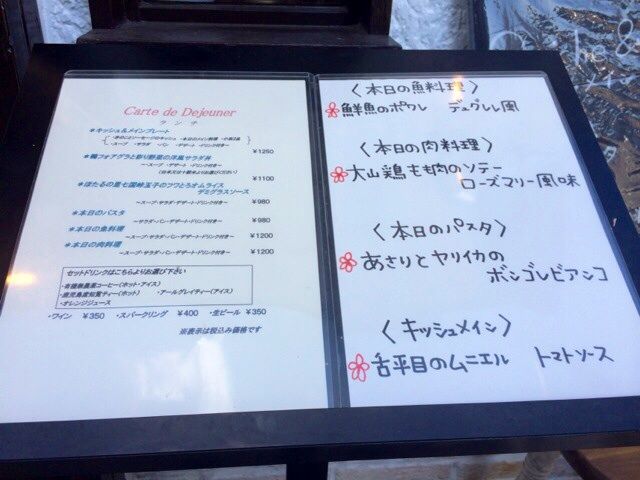 Carte de Dejeuner
ランチ
＊キッシュ＆メインプレート
・きのことソーセージのキッシュ ・本日のメイン料理 ・小菜2品
・スープ ・サラダ ・パン ・デザート ・ドリンク付き
¥1250
＊鴨フォアグラと彩り野菜の洋風サラダ丼
～スープ・デザート・ドリンク付き～
¥1100
＊ほたるの里七国峠玉子のフワとろオムライス
デミグラスソース
～スープ・サラダ・デザート・ドリンク付き～
¥980
＊本日のパスタ
～サラダ・パン・デザート・ドリンク付き～
¥980
＊本日の魚料理
～スープ・サラダ・パン・デザート・ドリンク付き～
¥1200
＊本日の肉料理
～スープ・サラダ・パン・デザート・ドリンク付き～
¥1200
セットドリンクはこちらよりお選び下さい
・有機無農薬コーヒー(ホット・アイス)
・鹿児島産知覧ティー(ホット) ・アールグレイティー(アイス)
・オレンジジュース
・ワイン ¥350 ・スパークリング ¥400 ・生ビール ¥350
※表示は税込み価格です
〈本日の魚料理〉
鮮魚のポワレ デュグレレ風
〈本日の肉料理〉
大山鶏もも肉のソテー
ローズマリー風味
〈本日のパスタ〉
あさりとヤリイカの
ボンゴレビアンコ
〈キッシュメイン〉
舌平目のムニエル トマトソース